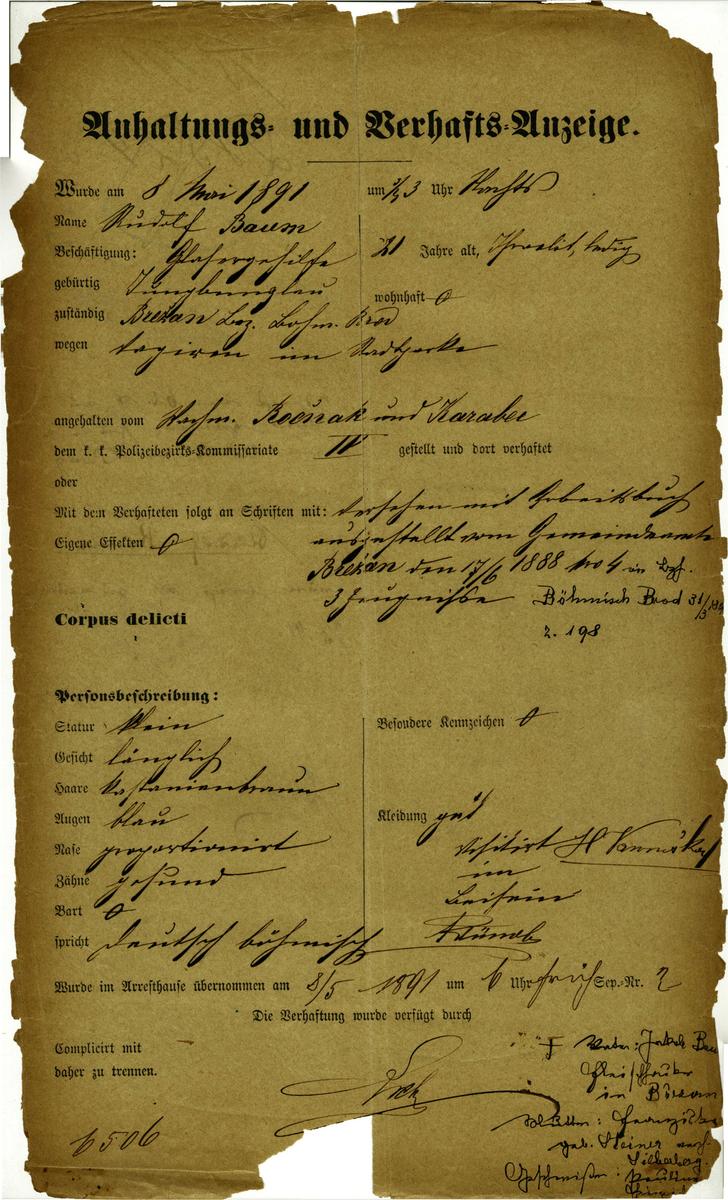 Anhaltungs- und Verhafts-Anzeige.
Wurde am 8 Mai 1891 um ½3 Uhr Nachts
Name Rudolf Baum
Beschäftigung: Glasergehilfe 21 Jahre alt, ledig
gebürtig Jungbunzlau wohnhaft 0
zuständig Brežan Bez. Böhm. Brod
wegen im Stadtparke
angehalten vom Wachm. und Karabec
dem k. k. Polizeibezirks-Kommissariate IV gestellt und dort verhaftet
oder
Mit dem Verhafteten folgt an Schriften mit: versehen mit Arbeitsbuch
Eigene Effekten 0 ausgestellt vom Gemeindeamte
Brežan den 17/6 1888 No 4
3 Zeugnisse Böhmisch Brod 31/3
Corpus delicti
z. 198
Personsbeschreibung:
Statur klein Besondere Kennzeichen 0
Gesicht länglich
Haare kastanienbraun
Augen blau Kleidung gut
Nase proportionirt Visitirt
Zähne gesund im
Bart 0 Beisein
spricht deutsch böhmisch
Wurde im Arresthause übernommen am 8/5 1891 um 6 Uhr früh Sep.-Nr. 2
Die Verhaftung wurde verfügt durch
Complicirt mit
daher zu trennen.
† Vater: Jakob
Fleischhauer
in Březan
Mutter:
geb. Steiner
Silberberg.
Geschwister: Pauline
6506